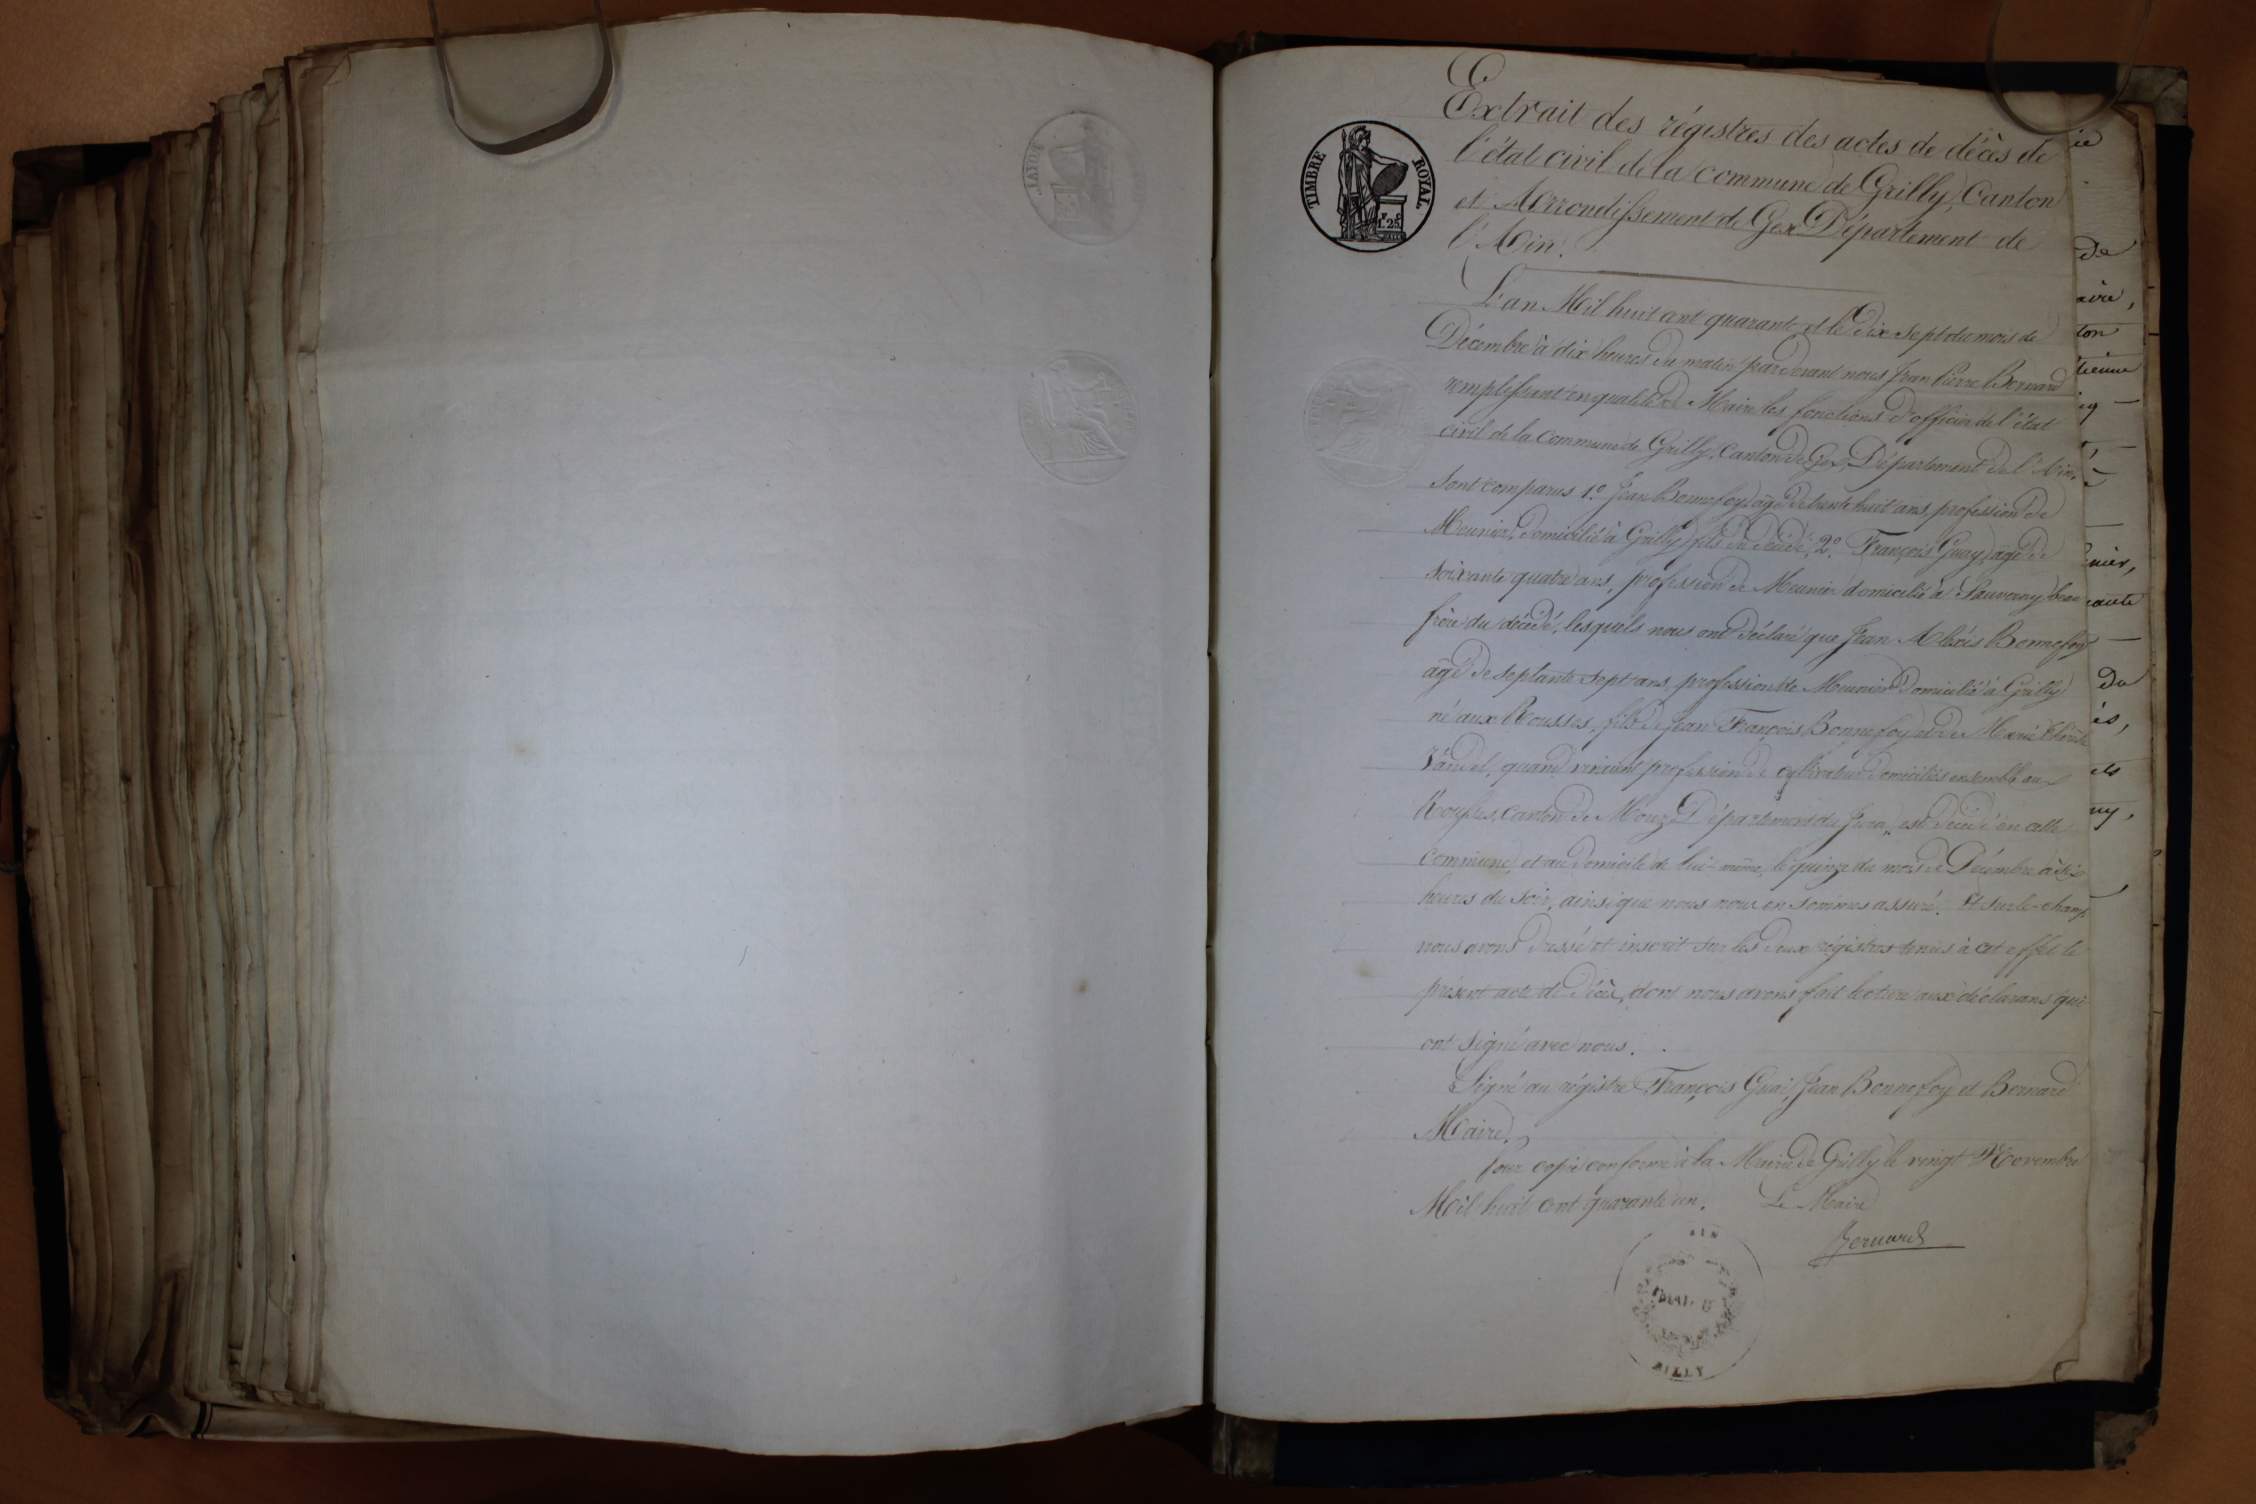 Extrait des régistres des actes de décès de
l'état civil de la commune de Grilly, Canton
et Arrondissement de Gex Département de
l'Ain.
TIMBRE ROYAL
1F 25C
L'an Mil huit cent quarante et le dix sept du mois de
Décembre à dix heures du matin par devant nous Jean Pierre Bernard
remplissant en qualité de Maire les fonctions d'officier de l'état
civil de la commune de Grilly, Canton de Gex, Département de l'Ain,
Sont comparus 1.o Jean Bonnefoy, agé de trente huit ans, profession de
Meunier, domicilié à Grilly, fils du décédé, 2.o François Guay, agé de
soixante quatre ans, profession de Meunier domicilié à Sauverny beau
frère du décédé, lesquels nous ont déclaré que Jean Alexis Bonnefoy
agé de septante sept ans, profession de Meunier domicilié à Grilly
né aux Rousses, fils de Jean François Bonnefoy et de Marie
Vandel, quand vivaient profession de cultivateur domiciliés ensemble aux
Rousses, canton de Morez Département du Jura, est décédé en cette
commune, et au domicile de lui-même, le quinze du mois de Décembre à six
heures du soir, ainsi que nous nous en sommes assuré. Et sur le-champ
nous avons dressé et inscrit sur les deux régistres tenus à cet effet le
présent acte de décès, dont nous avons fait lecture aux déclarans qui
ont signé avec nous.
Signé au régistre François Guai, Jean Bonnefoy et Bernard
Maire.
Pour copie conforme à la Mairie de Grilly le vingt Novembre
Mil huit cent quarante un. Le Maire
Bernard
AIN
RILLY
de
aire,
ton
tienne
nier,
du